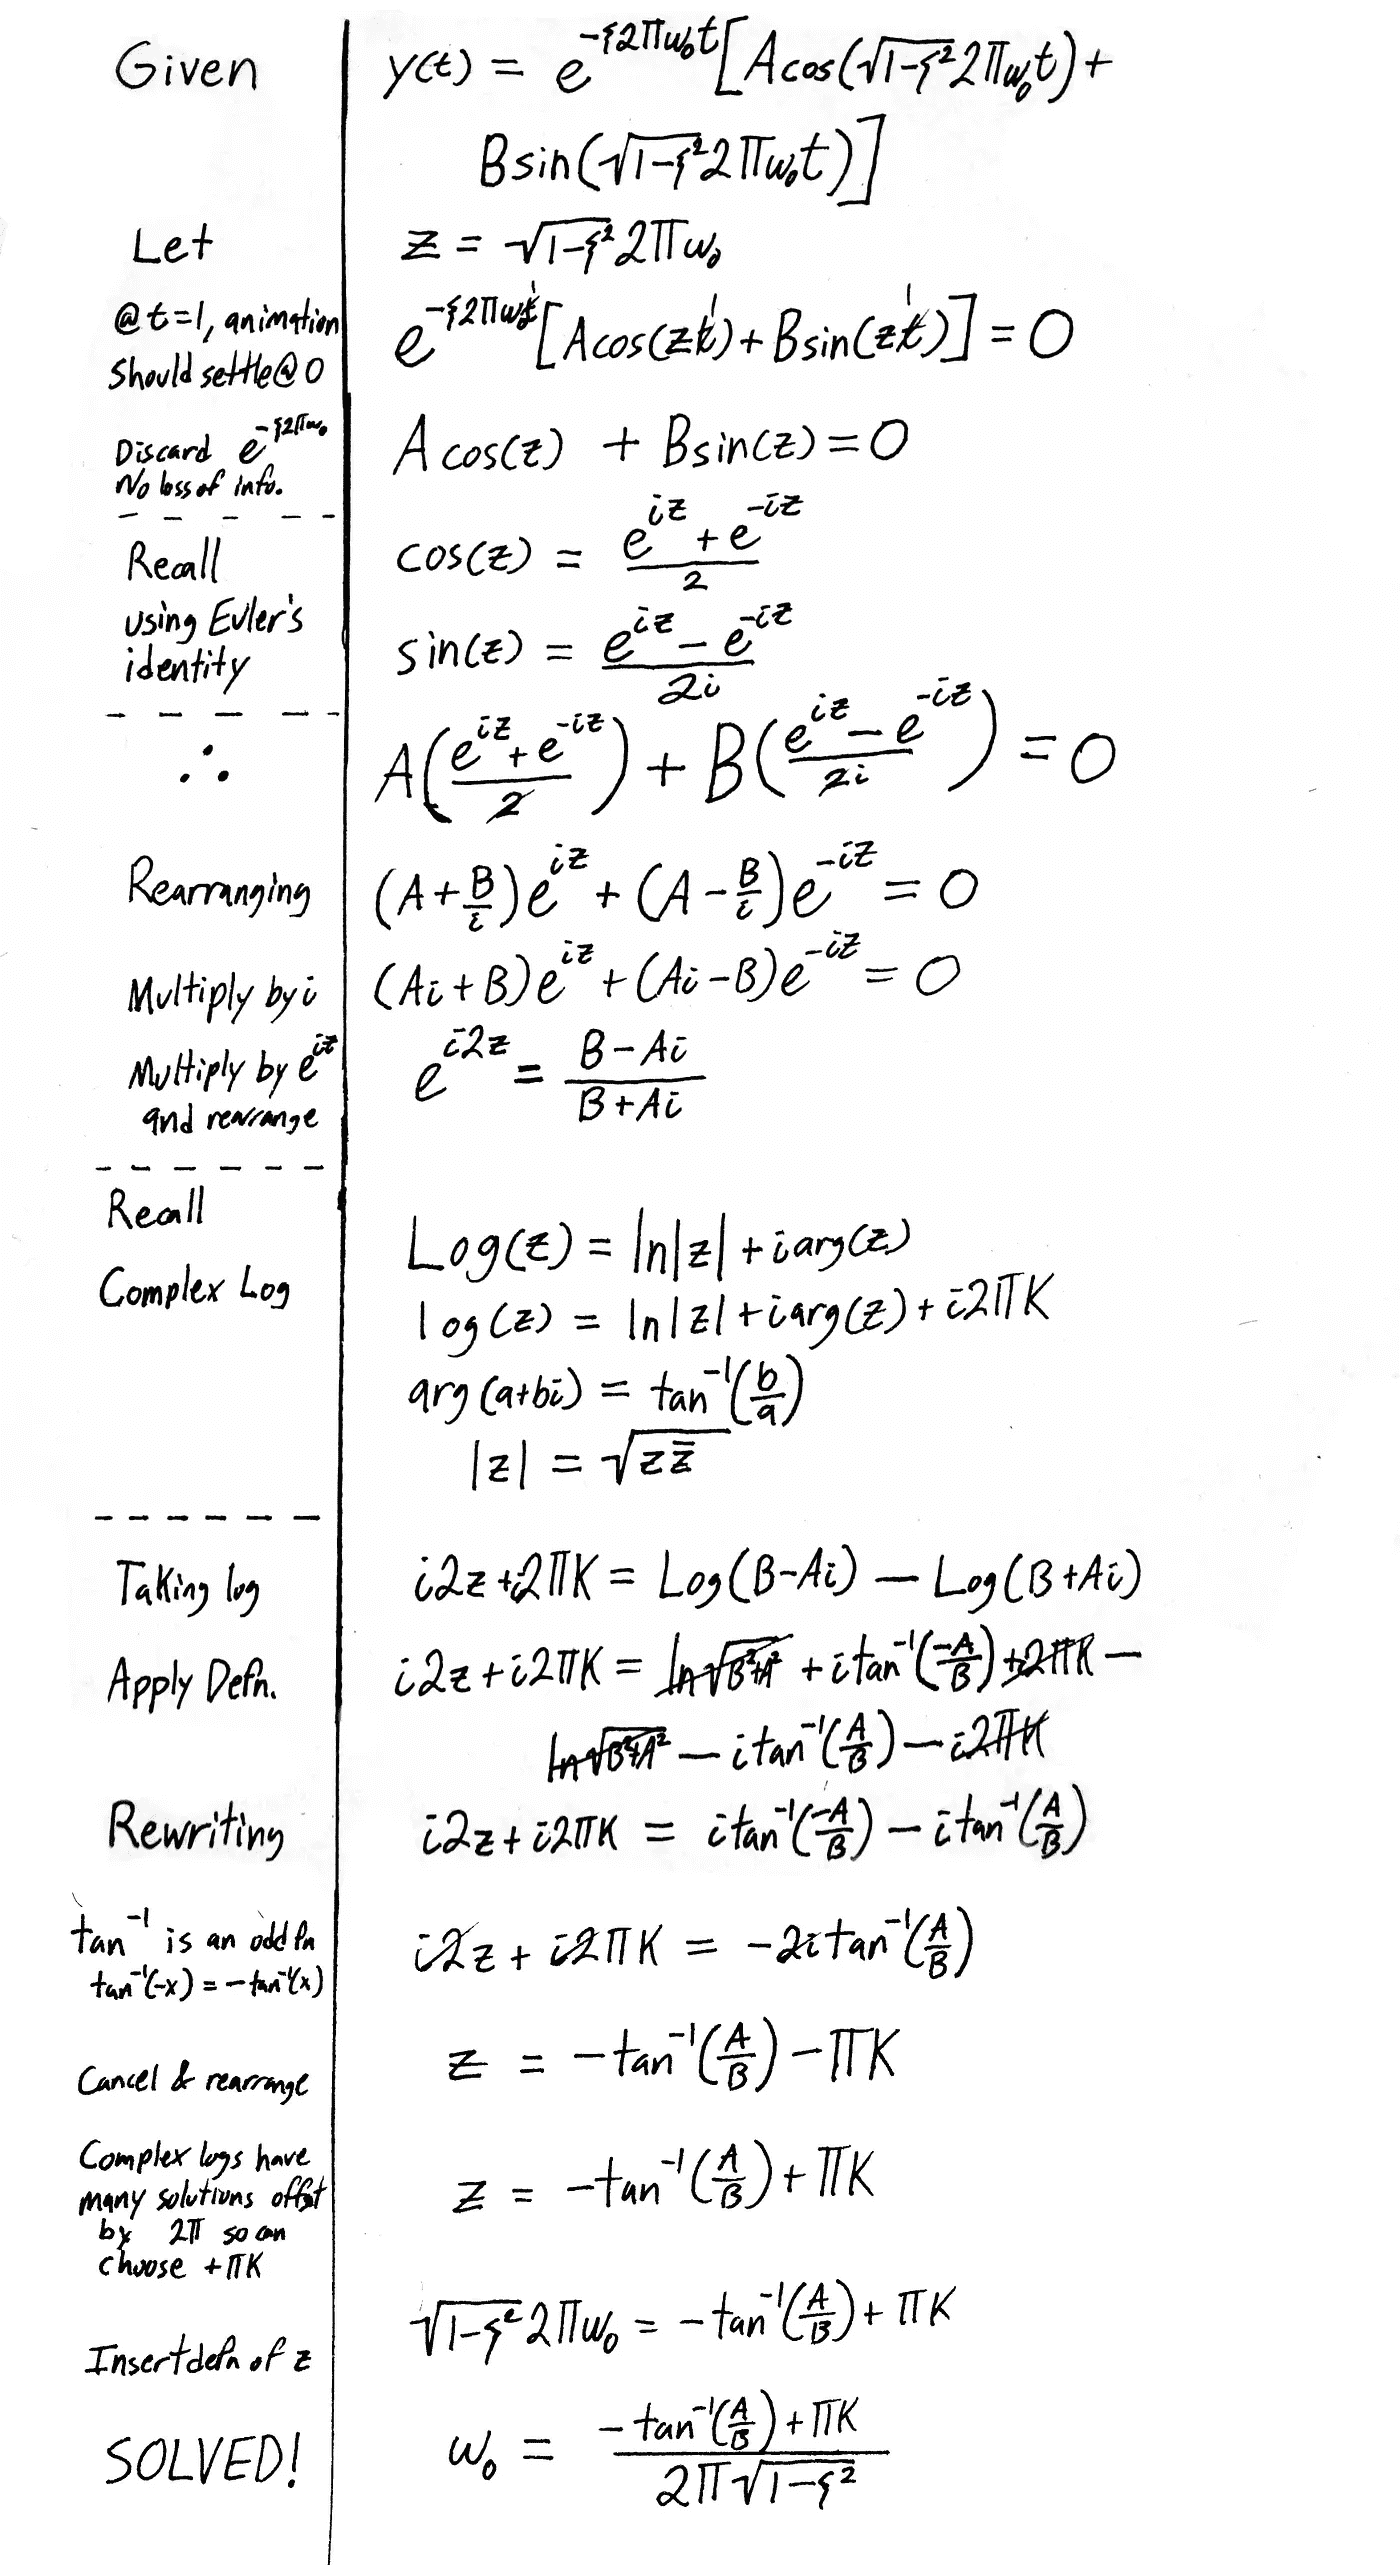 Given y(t) = e^{-ξ2πω₀t}[Acos(√(1-ξ²)2πω₀t)+
Bsin(√(1-ξ²)2πω₀t)]
Let z = √(1-ξ²)2πω₀
@t=1, animation
Should settle@0 e^{-ξ2πω₀t¹}[Acos(zt¹)+Bsin(zt¹)] = 0
Discard e^{-ξ2πω₀}
No loss of info. Acos(z) + Bsin(z) = 0
Recall cos(z) = (e^{iz}+e^{-iz})/2
using Euler's
identity sin(z) = (e^{iz}-e^{-iz})/2i
∴ A((e^{iz}+e^{-iz})/2) + B((e^{iz}-e^{-iz})/2i) = 0
Rearranging (A+B/i)e^{iz} + (A-B/i)e^{-iz} = 0
Multiply by i (Ai+B)e^{iz}+(Ai-B)e^{-iz} = 0
Multiply by e^{iz}
and rearrange e^{i2z} = (B-Ai)/(B+Ai)
Recall
Complex Log
Log(z) = ln|z| + iarg(z)
log(z) = ln|z| + iarg(z) + i2πK
arg(a+bi) = tan⁻¹(b/a)
|z| = √(zz̄)
Taking log i2z+i2πK = Log(B-Ai) - Log(B+Ai)
Apply Defn. i2z+i2πK = ln√(B²+A²) + itan⁻¹(-A/B)+2πK -
ln√(B²+A²) - itan⁻¹(A/B) - i2πK
Rewriting i2z+i2πK = itan⁻¹(-A/B) - itan⁻¹(A/B)
tan⁻¹ is an odd fn
tan⁻¹(-x) = -tan⁻¹(x) i2z + i2πK = -2itan⁻¹(A/B)
Cancel & rearrange z = -tan⁻¹(A/B) - πK
Complex logs have
many solutions offset
by 2π so can
choose +πK z = -tan⁻¹(A/B) + πK
Insert defn of z √(1-ξ²)2πω₀ = -tan⁻¹(A/B) + πK
SOLVED! ω₀ = (-tan⁻¹(A/B)+πK)/(2π√(1-ξ²))